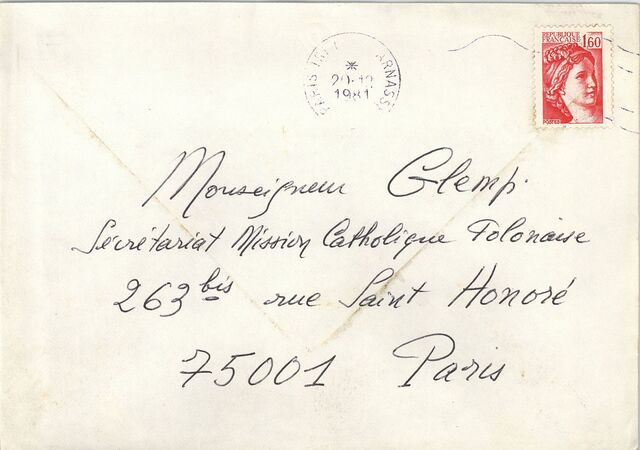 *
1981
REPUBLIQUE
FRANÇAISE 1,60
POSTES
Monseigneur Glemp.
Secrétariat Mission Catholique Polonaise
263 bis rue Saint Honoré
75001 Paris